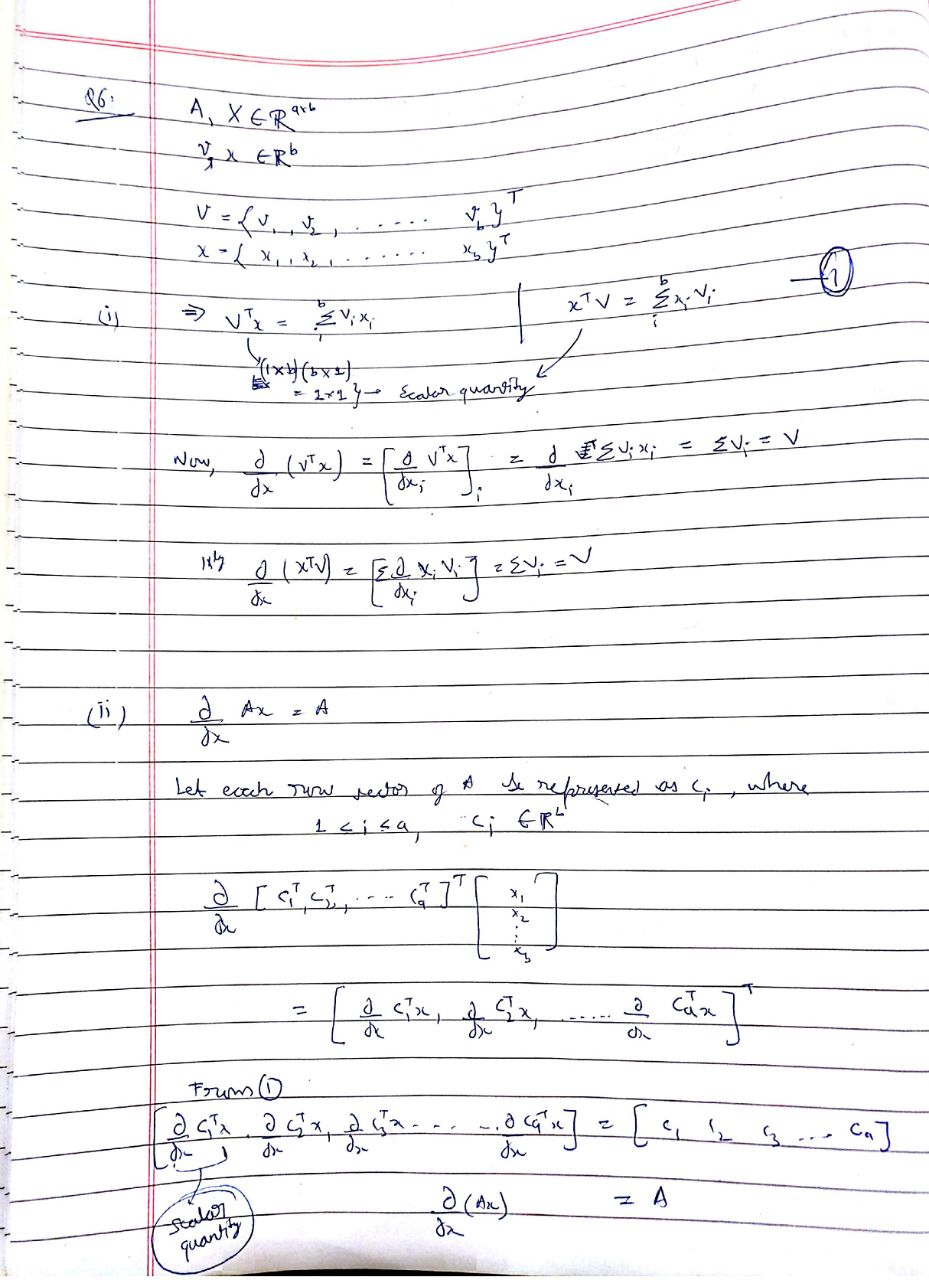 Q6. A, X ∈ ℝ^{a×b}
v, x ∈ ℝ^b
V = {v_1, v_2, ...... v_b}^T
x = {x_1, x_2, ...... x_b}^T
(i) ⇒ V^T x = Σ_i^b V_i x_i | x^T V = Σ_i^b x_i V_i —①
(1×b)(b×1)
= 1×1} → Scalar quantity
Now, ∂/∂x (V^T x) = [∂/∂x_i V^T x]_i = ∂/∂x_i Σ V_i x_i = Σ V_i = V
|||ly ∂/∂x (x^T V) = [Σ ∂/∂x_i x_i V_i] = Σ V_i = V
(ii) ∂/∂x Ax = A
Let each row vector of A be represented as c_i, where
1 < i ≤ a, c_i ∈ ℝ^b
∂/∂x [c_1^T, c_2^T, ... c_a^T]^T [x_1 x_2 ⋮ x_3]
= [∂/∂x c_1^T x, ∂/∂x c_2^T x, ..... ∂/∂x c_a^T x]^T
From ①
[∂/∂x c_1^T x, ∂/∂x c_2^T x, ∂/∂x c_3^T x ... ... ∂/∂x c_a^T x] = [c_1 c_2 c_3 ... c_a]
scalar
quantity
∂/∂x (Ax) = A